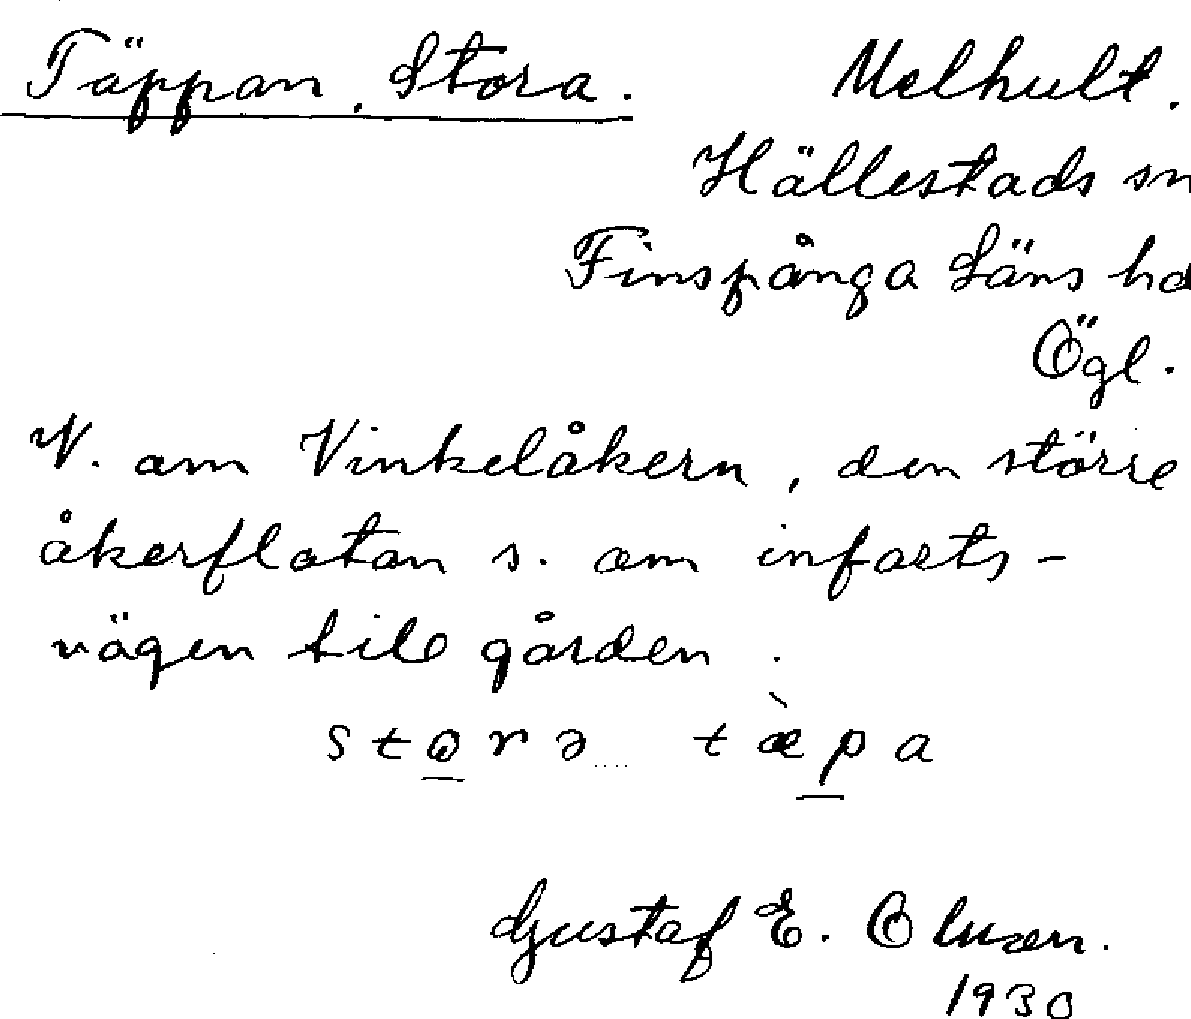 Täppan, Stora. Melhult.
Hällestads sn
Finspånga Läns hd
Ögl.
V. om Vinkelåkern, den större
åkerflatan s. om infarts-
vägen till gården.
storə tæ̀pa
Gustaf E.
1930